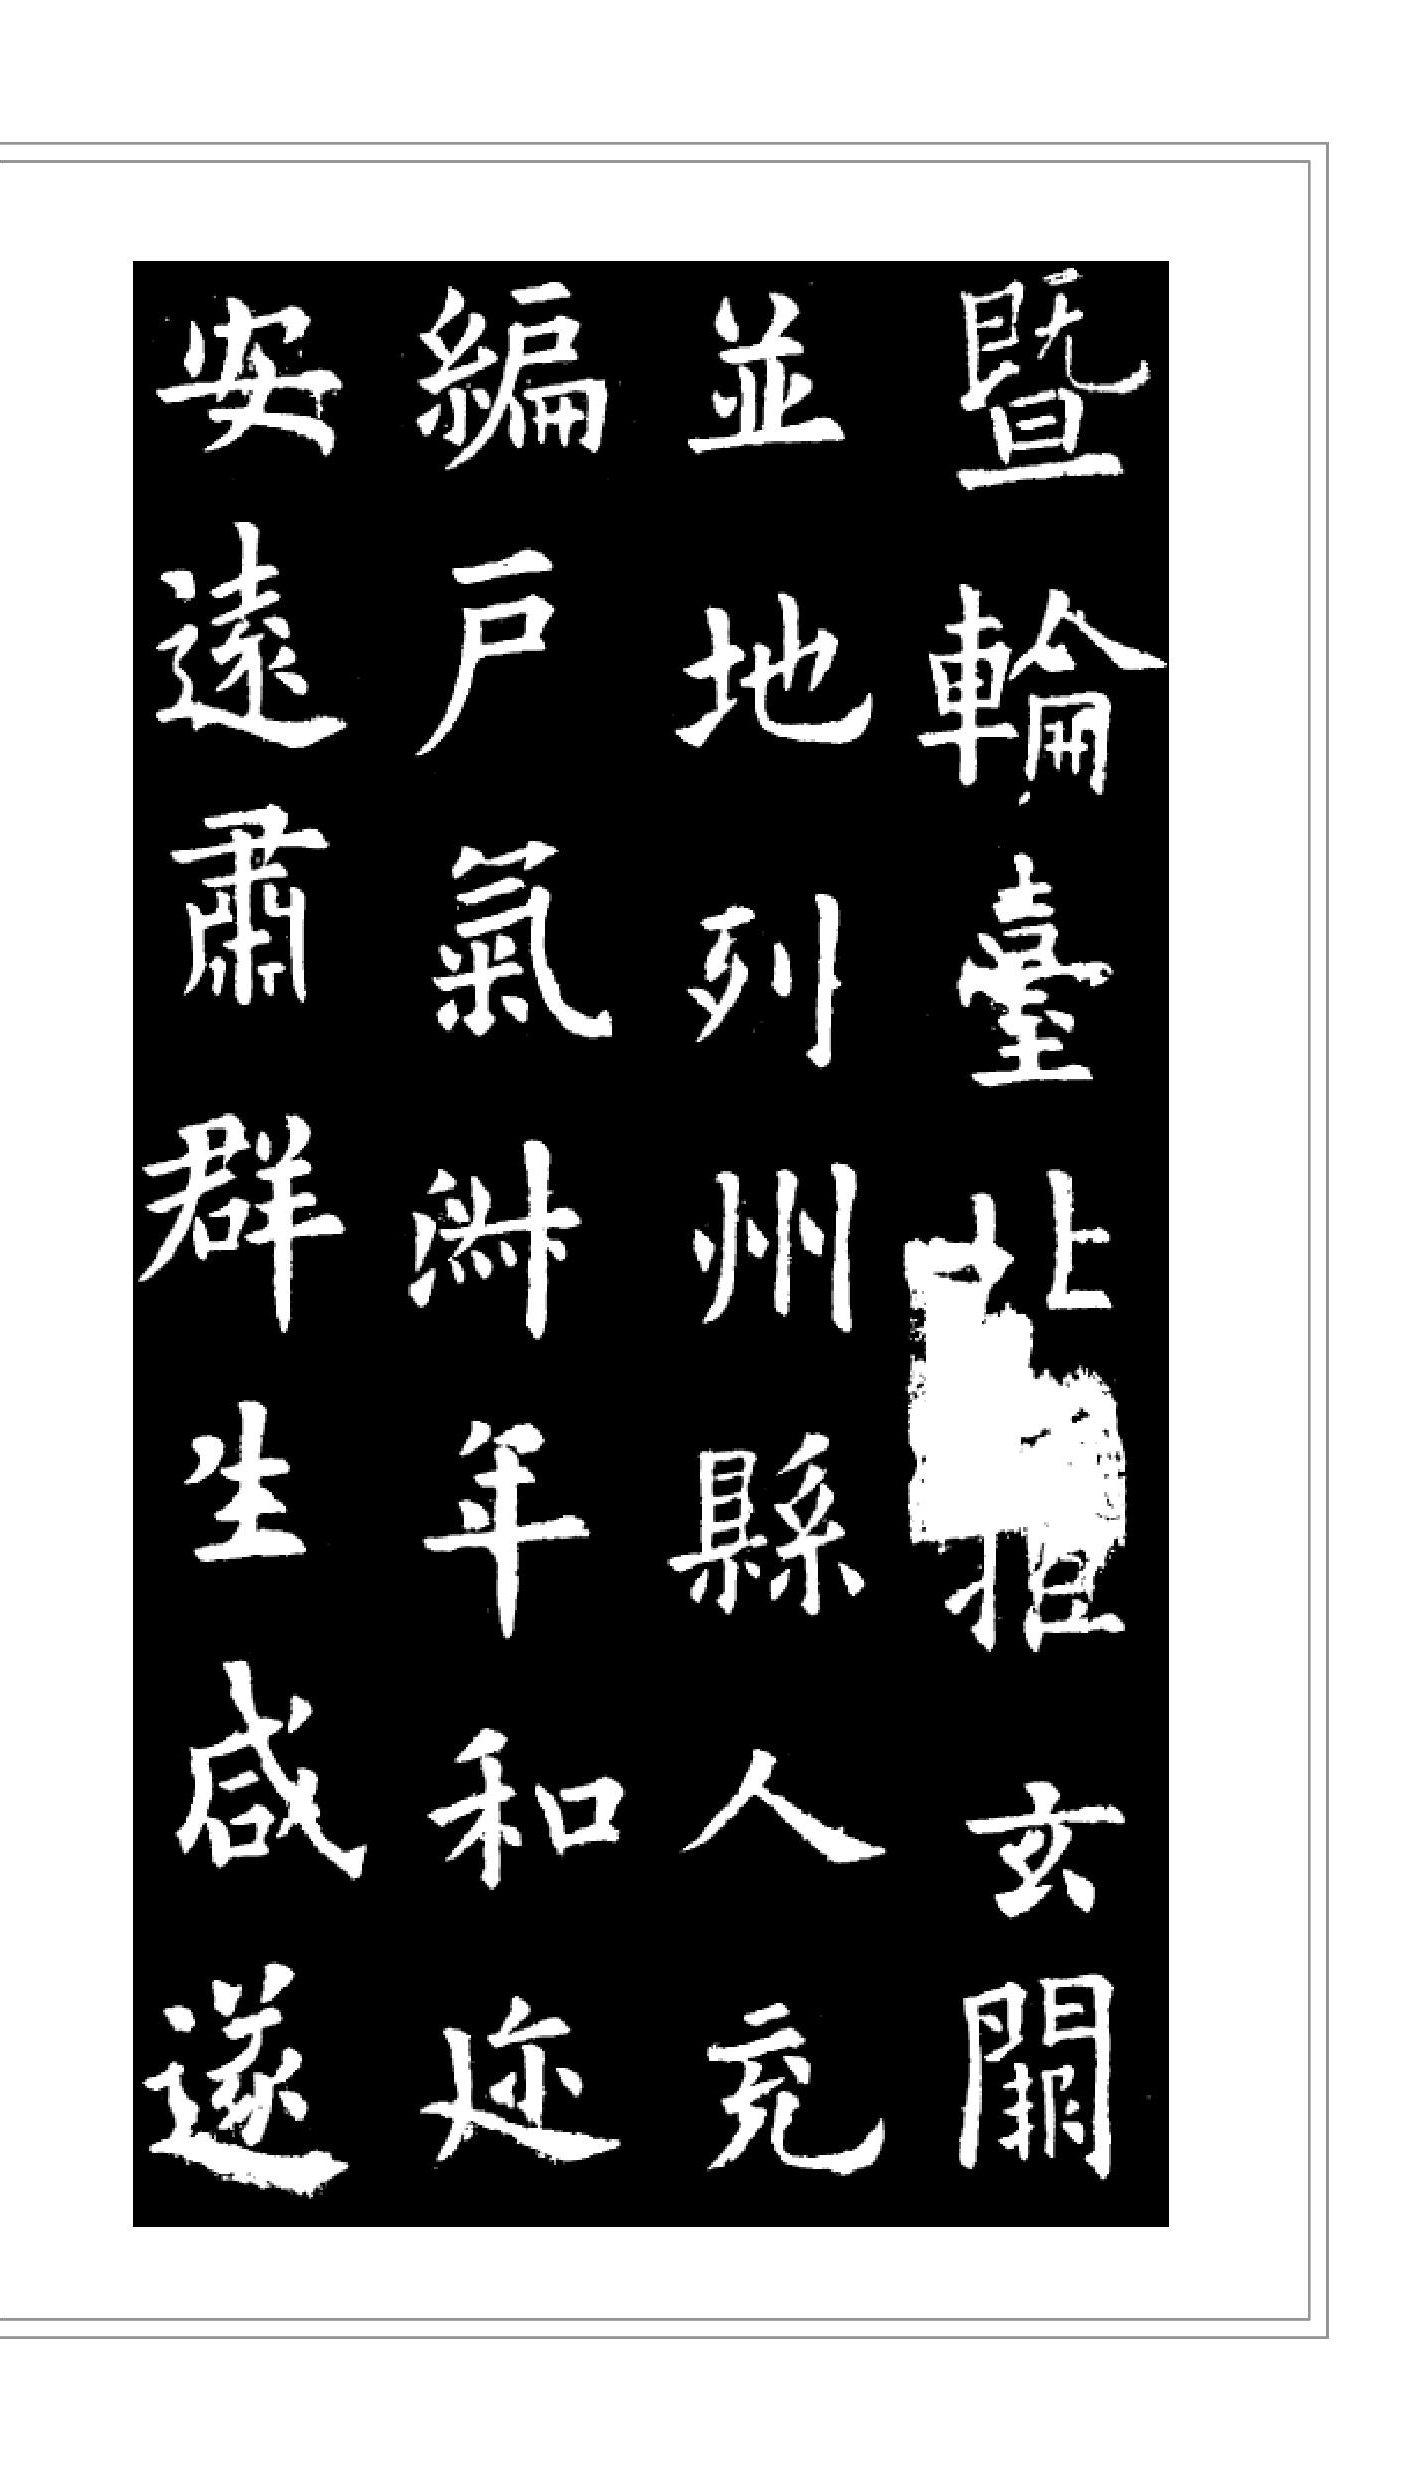 暨輪臺北拒玄闕
並地列州縣人充
編戶氣淑年和迩
安遠肅群生咸遂